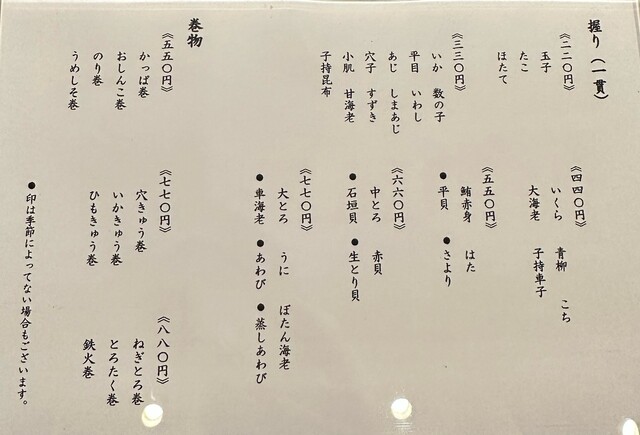 握り（一貫）
《二二〇円》
玉子
たこ
ほたて
《三三〇円》
いか 数の子
平目 いわし
あじ しまあじ
穴子 すずき
小肌 甘海老
子持昆布
《四四〇円》
いくら 青柳 こち
大海老 子持車子
《五五〇円》
鮪赤身 はた
●平貝 ●さより
《六六〇円》
中とろ 赤貝
●石垣貝 ●生とり貝
《七七〇円》
大とろ うに ぼたん海老
●車海老 ●あわび ●蒸しあわび
巻物
《五五〇円》
かっぱ巻
おしんこ巻
のり巻
うめしそ巻
《七七〇円》
穴きゅう巻
いかきゅう巻
ひもきゅう巻
《八八〇円》
ねぎとろ巻
とろたく巻
鉄火巻
●印は季節によってない場合もございます。